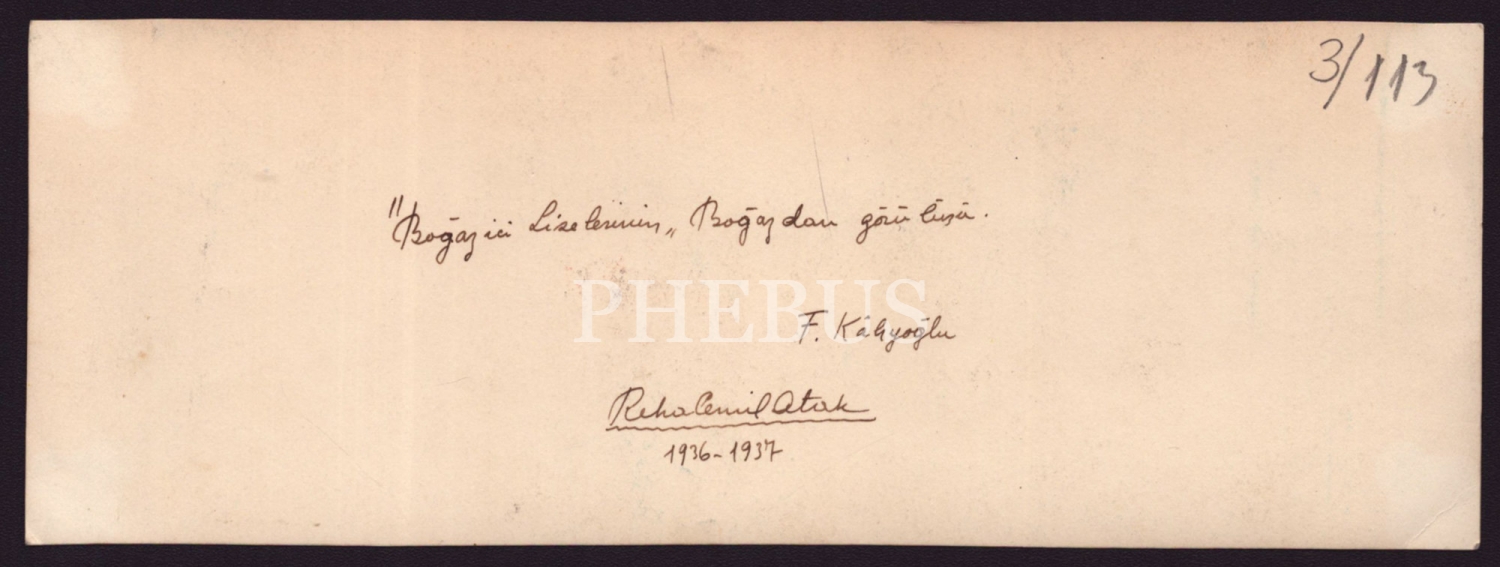 3/113
"Boğaziçi Liselerinin„ Boğazdan görünüşü.
PHEBUS
F. Kâhyaoğlu
Reha Cemil Atak
1936-1937